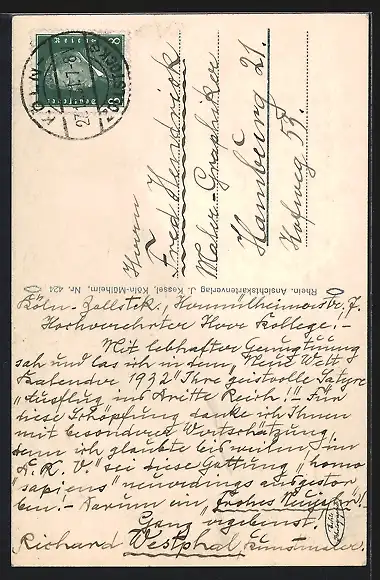 Herrn
Fred Hendriok
Maler-Graphiker
Hamburg 21.
Hofweg 53.
Rhein. Ansichtskartenverlag J. Kessel, Köln-Mülheim, Nr. 424
Köln-Zollstock, 7.
Hochverehrter Herr Kollege, –
Mit lebhafter Genugtuung
sah und las ich in dem "Neue Welt
Kalender 1932" Ihre geistvolle Satyre
"Ausflug ins dritte Reich!" – Für
diese Schöpfung danke ich Ihnen
mit besonderer Wertschätzung,
denn ich glaubte bisweilen, im
"A. K. V." sei diese Gattung "homo
sapiens" neuerdings ausgestor
ben. – Darum ein "Frohes Neujahr"! –
Ganz ergebenst!
Richard Westphal, Kunstmaler.